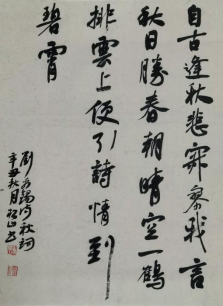 自古逢秋悲寂寥我言
秋日勝春朝晴空一鶴
排雲上便引詩情到
碧霄
劉禹錫詩秋詞
辛丑秋月